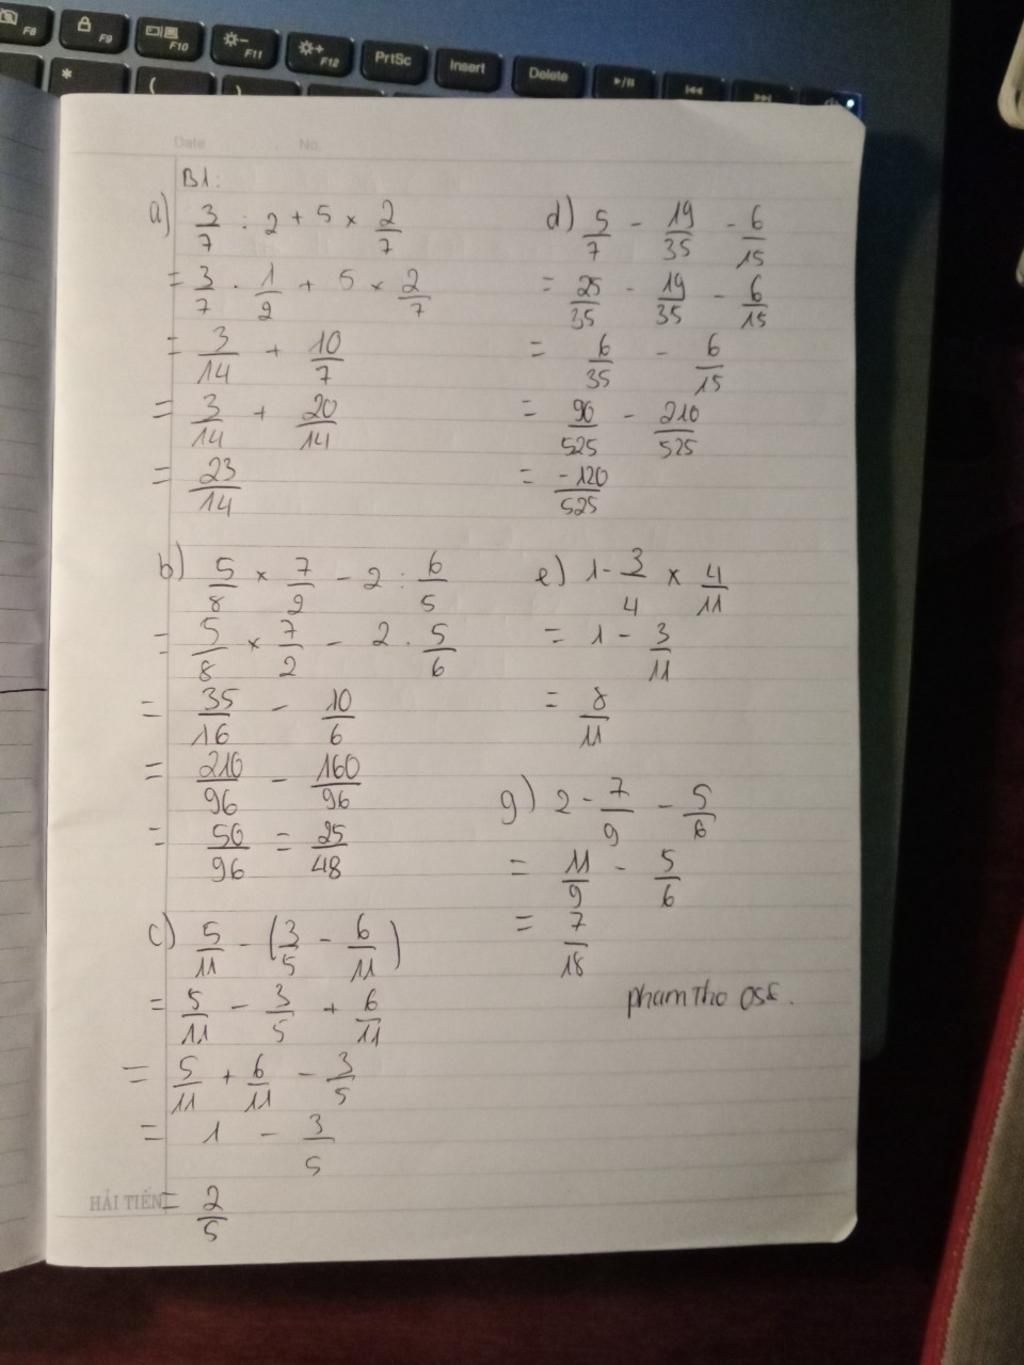 F8
F9
F10
F11
F12
PrtSc
Insert
Delete
*
(
)
Date
No.
B1:
a) 3/7 : 2 + 5 × 2/7
= 3/7 . 1/2 + 5 × 2/7
= 3/14 + 10/7
= 3/14 + 20/14
= 23/14
b) 5/8 × 7/2 - 2 : 6/5
= 5/8 × 7/2 - 2 . 5/6
= 35/16 - 10/6
= 210/96 - 160/96
= 50/96 = 25/48
c) 5/11 - (3/5 - 6/11)
= 5/11 - 3/5 + 6/11
= 5/11 + 6/11 - 3/5
= 1 - 3/5
= 2/5
HẢI TIẾN
d) 5/7 - 19/35 - 6/15
= 25/35 - 19/35 - 6/15
= 6/35 - 6/15
= 90/525 - 210/525
= -120/525
e) 1 - 3/4 × 4/11
= 1 - 3/11
= 8/11
g) 2 - 7/9 - 5/6
= 11/9 - 5/6
= 7/18